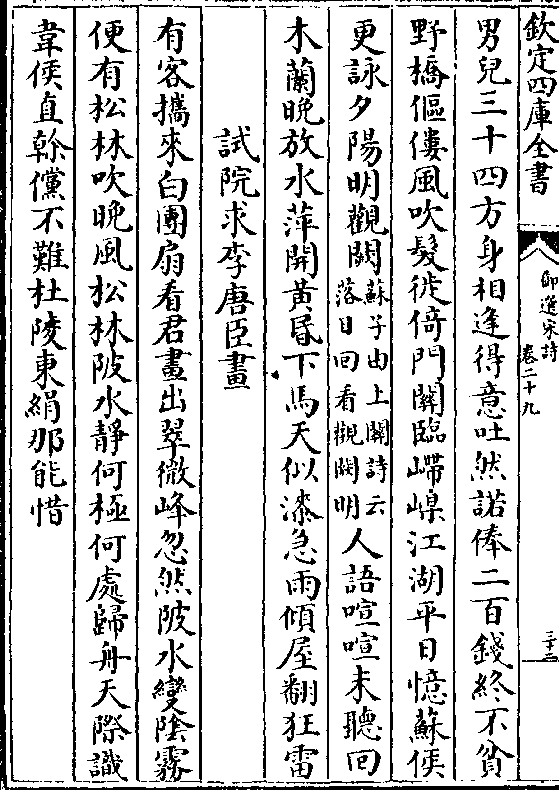 欽定四庫全書
御選宋詩
卷二十九
三十三
男兒三十四方身相逢得意吐然諾俸二百錢終不貧
野橋傴僂風吹髮徙倚門闌臨㟴嵲江湖平日憶蘇侯
更詠夕陽明觀闕蘇子由上闗詩云落日回看觀闕明人語喧喧未聽回
木蘭晚放水萍開黃昏下馬天似漆急雨傾屋翻狂雷
試院求李唐臣畫
有客攜來白團扇看君畫出翠微峰忽然陂水變陰霧
便有松林吹晚風松林陂水靜何極何處歸舟天際識
韋侯直榦儻不難杜陵東絹那能惜